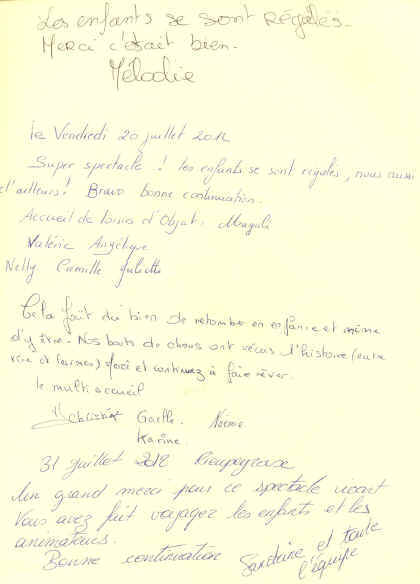 Les enfants se sont régalés.
Merci c'était bien.
Mélodie
le Vendredi 20 juillet 2012
Super spectacle ! les enfants se sont régalés, nous aussi
d'ailleurs! Bravo bonne continuation.
Accueil de loisirs d'Objat. Magali
Valérie Angélique
Nelly Camille Juliette
Cela fait du bien de retomber en enfance et même
d'y être. Nos bouts de choux ont vécus l'histoire (entre
rire et larmes) Merci et continuez à faire rêver.
le multi accueil
Christine Gaelle.
Karine.
31 juillet 2012 Rieupeyroux
Un grand merci pour ce spectacle vivant
Vous avez fait voyager les enfants et les
animateurs.
Bonne continuation
Sandrine et toute
l'équipe